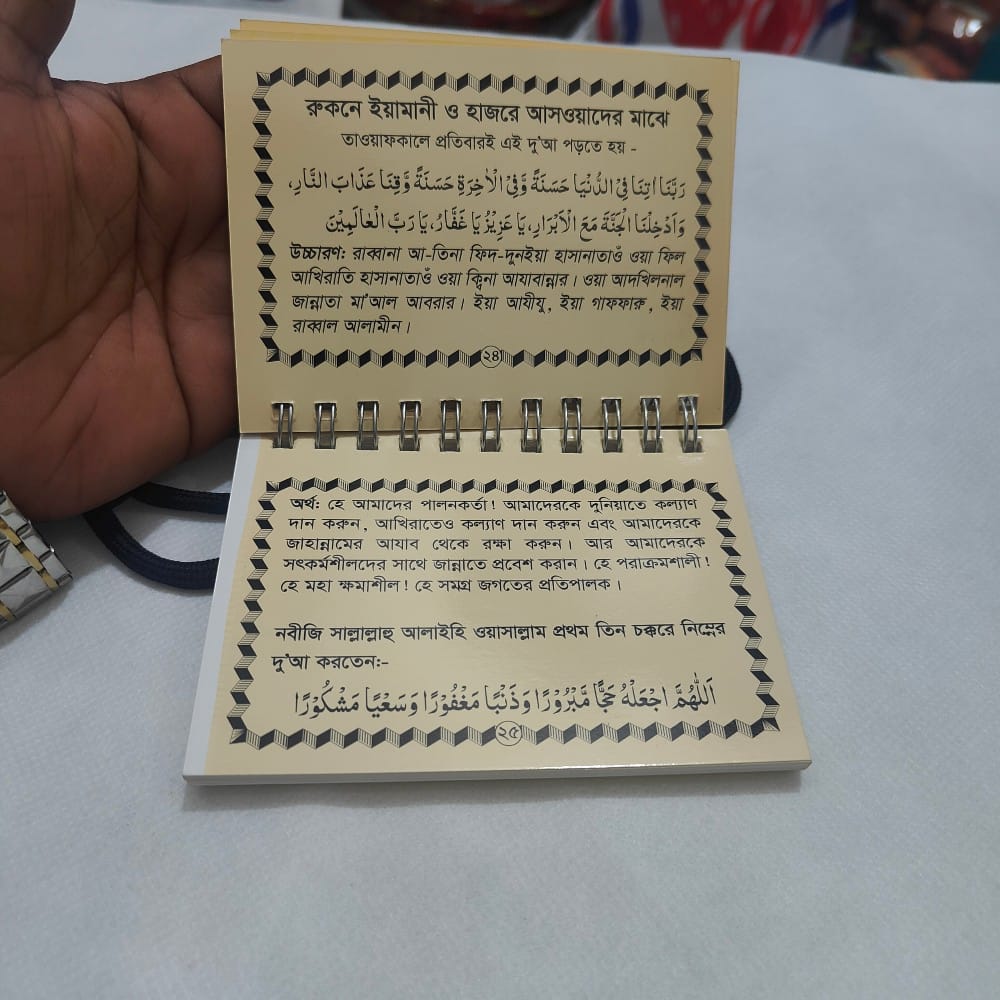 রুকনে ইয়ামানী ও হাজরে আসওয়াদের মাঝে
তাওয়াফকালে প্রতিবারই এই দু'আ পড়তে হয় -
رَبَّنَا اٰتِنَا فِي الدُّنْيَا حَسَنَةً وَّفِي الْاٰخِرَةِ حَسَنَةً وَّقِنَا عَذَابَ النَّارِ،
وَاَدْخِلْنَا الْجَنَّةَ مَعَ الْاَبْرَارِ، يَا عَزِيْزُ يَا غَفَّارُ، يَا رَبَّ الْعَالَمِيْنَ
উচ্চারণ: রাব্বানা আ-তিনা ফিদ-দুনইয়া হাসানাতাওঁ ওয়া ফিল
আখিরাতি হাসানাতাওঁ ওয়া ক্বিনা আযাবান্নার। ওয়া আদখিলনাল
জান্নাতা মা'আল আবরার। ইয়া আযীযু, ইয়া গাফফারু, ইয়া
রাব্বাল আলামীন।
২৪
অর্থ: হে আমাদের পালনকর্তা! আমাদেরকে দুনিয়াতে কল্যাণ
দান করুন, আখিরাতেও কল্যাণ দান করুন এবং আমাদেরকে
জাহান্নামের আযাব থেকে রক্ষা করুন। আর আমাদেরকে
সৎকর্মশীলদের সাথে জান্নাতে প্রবেশ করান। হে পরাক্রমশালী!
হে মহা ক্ষমাশীল! হে সমগ্র জগতের প্রতিপালক।
নবীজি সাল্লাল্লাহু আলাইহি ওয়াসাল্লাম প্রথম তিন চক্করে নিম্নের
দু'আ করতেন:-
اَللّٰهُمَّ اجْعَلْهُ حَجًّا مَّبْرُوْرًا وَذَنْبًا مَغْفُوْرًا وَسَعْيًا مَشْكُوْرًا
২৫